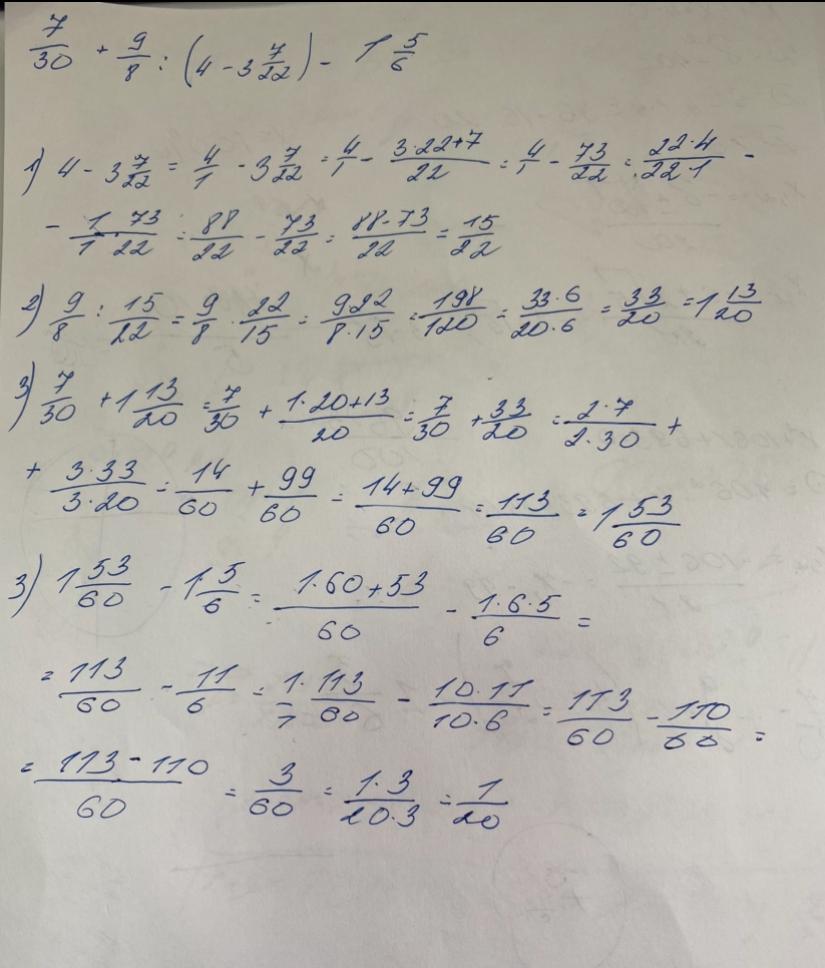 7/30 + 9/8 : (4 - 3 7/22) - 1 5/6
1) 4 - 3 7/22 = 4/1 - 3 7/22 = 4/1 - 3·22+7/22 = 4/1 - 73/22 = 22·4/22·1 -
- 1·73/1·22 = 88/22 - 73/22 = 88-73/22 = 15/22
2) 9/8 : 15/22 = 9/8 · 22/15 = 9·22/8·15 = 198/120 = 33·6/20·6 = 33/20 = 1 13/20
3) 7/30 + 1 13/20 = 7/30 + 1·20+13/20 = 7/30 + 33/20 = 2·7/2·30 +
+ 3·33/3·20 = 14/60 + 99/60 = 14+99/60 = 113/60 = 1 53/60
3) 1 53/60 - 1·5/6 = 1·60+53/60 - 1·6·5/6 =
= 113/60 - 11/6 = 1·113/1·60 - 10·11/10·6 = 113/60 - 110/60 =
= 113-110/60 = 3/60 = 1·3/20·3 = 1/20